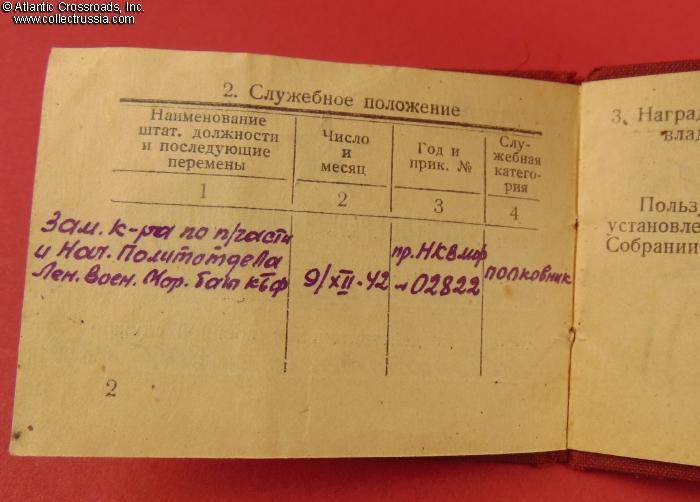 © Atlantic Crossroads, Inc.
www.collectrussia.com
2. Служебное положение
Наименование штат. должности и последующие перемены
Число и месяц
Год и прик. №
Слу-жебная катего-рия
1 2 3 4
Зам. к-ра по п/части
и Нач. Политотдела
Лен. Воен. Мор. базы КБФ
9/XII-42
пр. НКВМФ
02822
полковник
2
3. Наград
влад
Польз
установле
Собрании